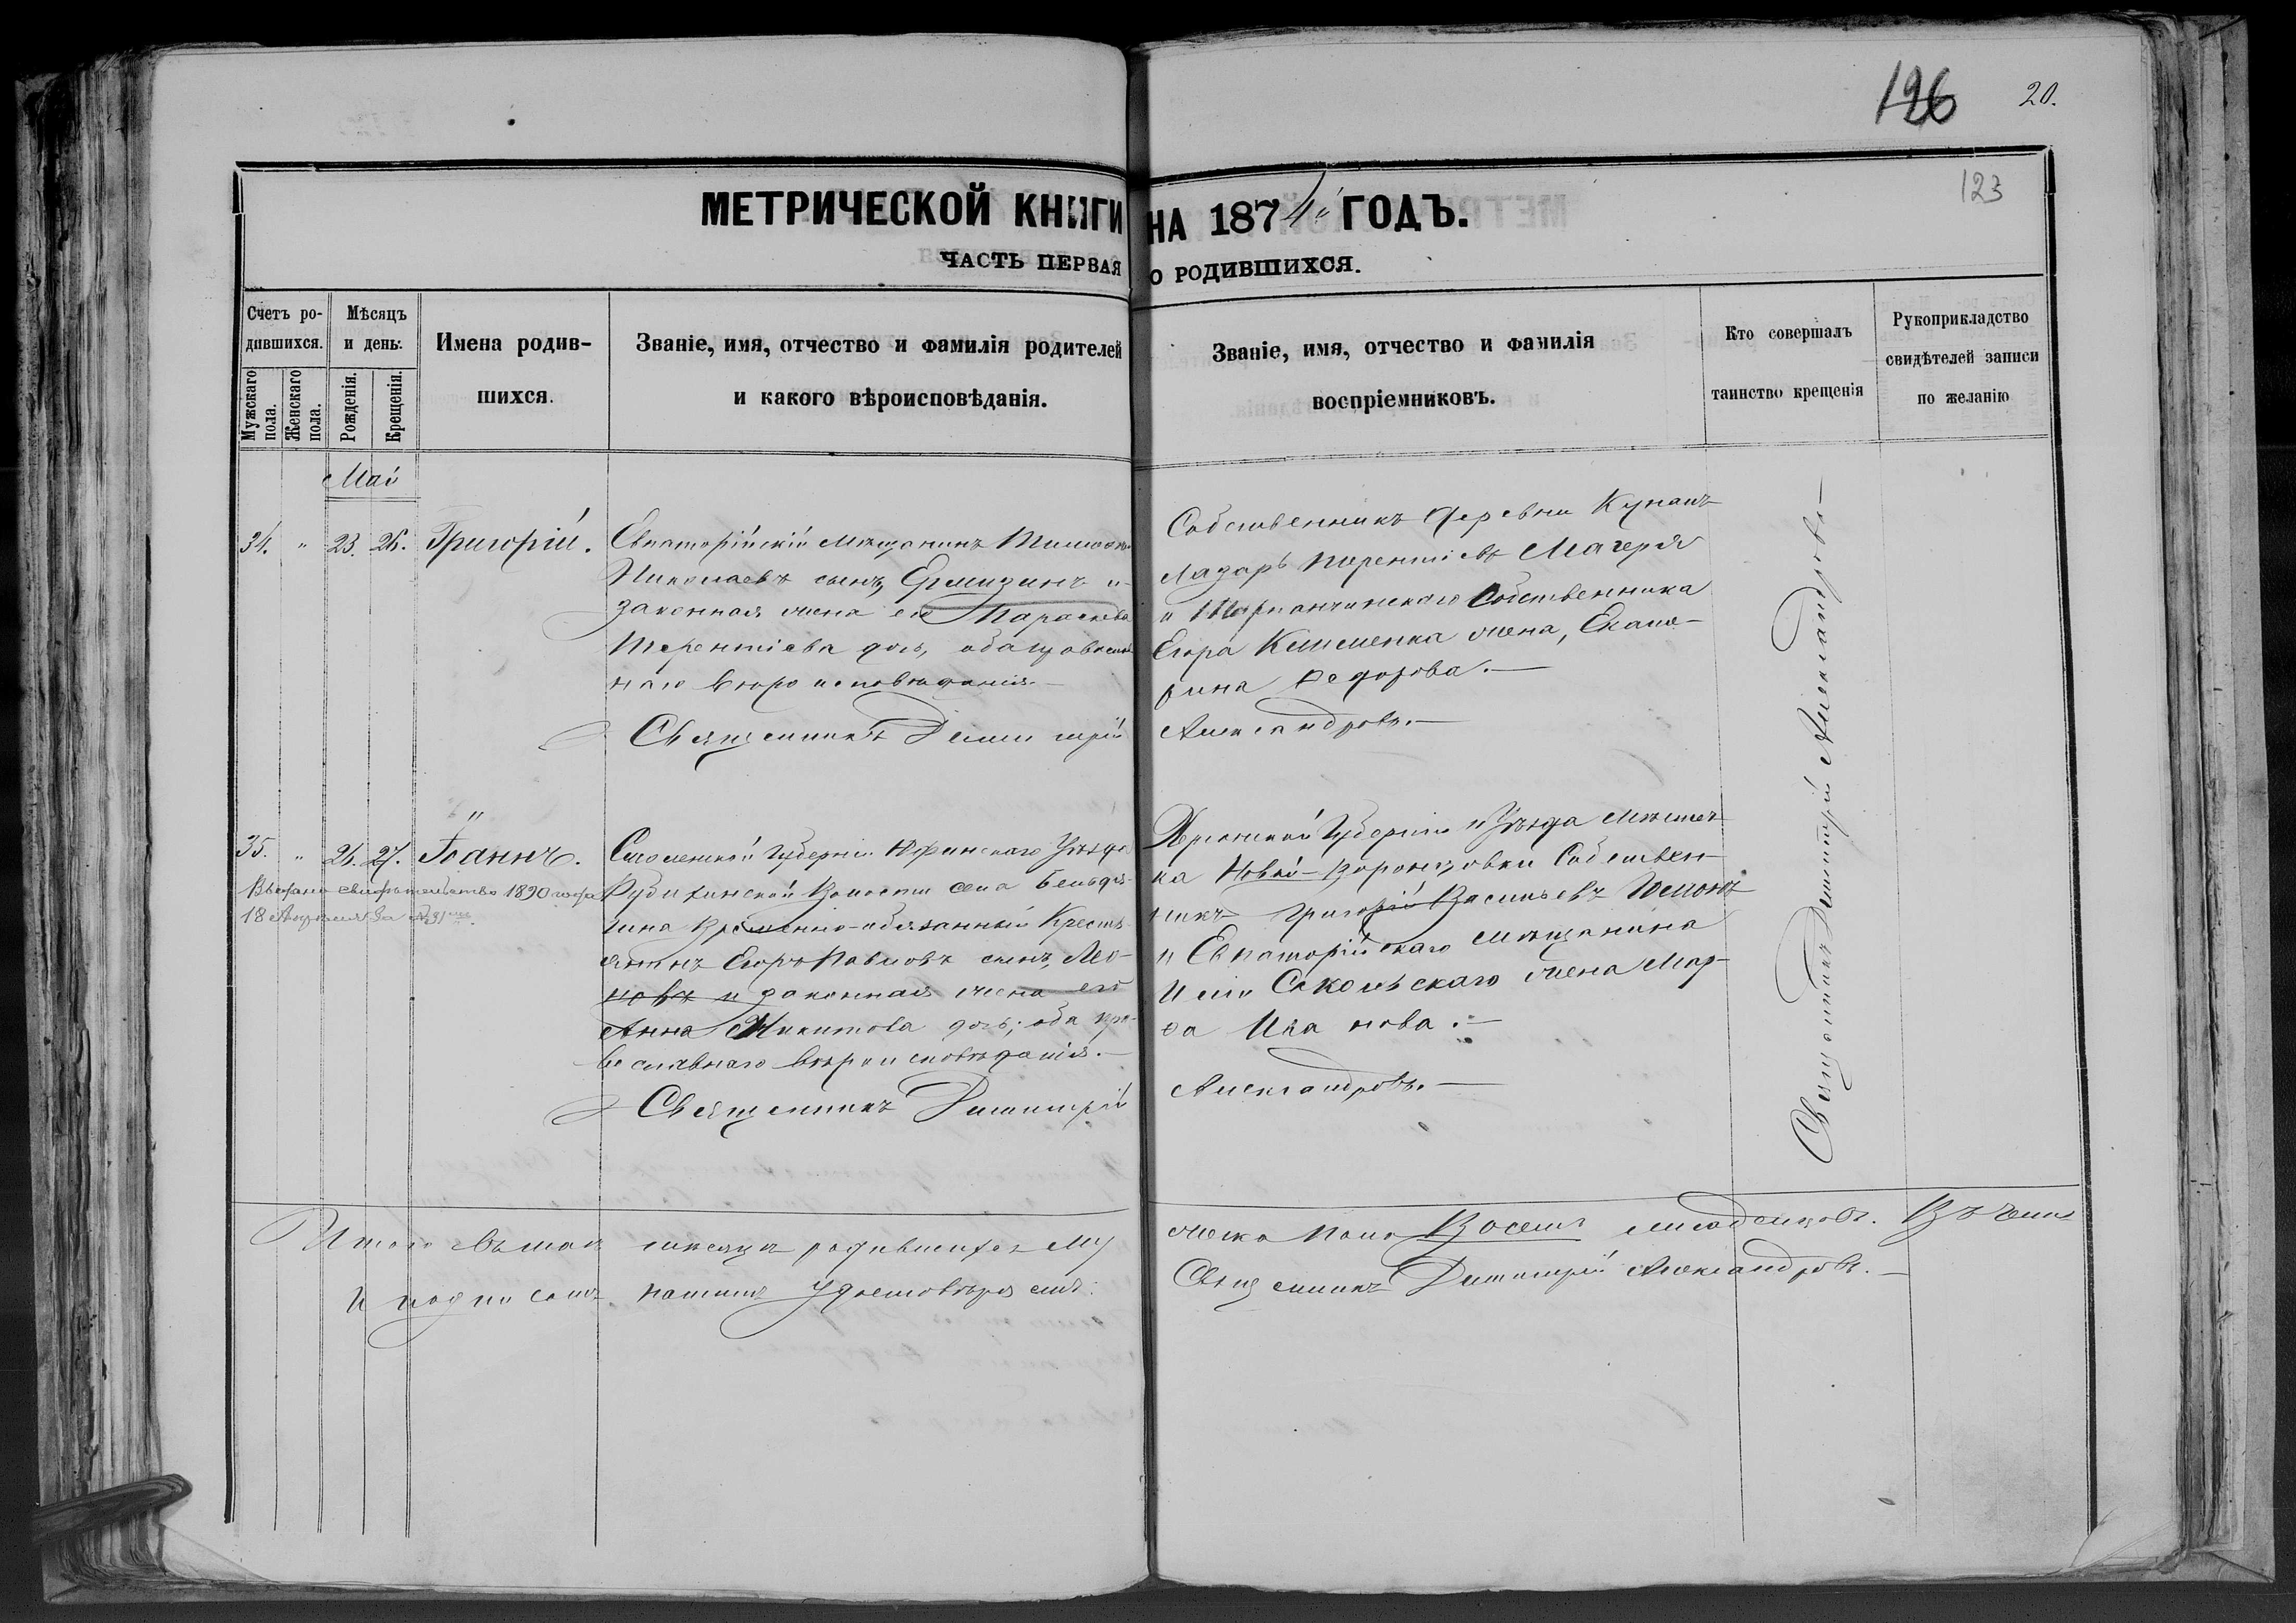 126 20.
123
МЕТРИЧЕСКОЙ КНИГИ НА 1874й ГОДЪ.
ЧАСТЬ ПЕРВАЯ О РОДИВШИХСЯ.
Счетъ родившихся.
Мужскаго пола.
Женскаго пола.
Мѣсяцъ и день.
Рожденія.
Крещенія.
Имена родив-
шихся.
Званіе, имя, отчество и фамилія родителей
и какого вѣроисповѣданія.
Званіе, имя, отчество и фамилія
воспріемниковъ.
Кто совершалъ
таинство крещенія
Рукоприкладство
свидѣтелей записи
по желанію
Май
34. " 23. 26. Григорій.
Евпаторійскій мѣщанинъ
Николаевъ сынъ, Ермизинъ и
законная жена его Параскева
Терентіева дочь, оба православ
наго вѣроисповѣданія.
Священникъ Димитрій
Собственникъ деревни Кунанъ
Лазарь Терентіевъ Магеря
и Тарханчинскаго Собственника
Егора Клименка жена, Екате-
рина Ѳедорова.—
Александровъ.—
35. " 26. 27. Іоаннъ.
Выдано свидѣтельство 1890 года
18 Апрѣля за
Смоленской Губерніи Юхнскаго Уѣзда
Волости села Бельдя-
гина Временно-обязанный Кресть-
янинъ Егоръ Павловъ сынъ, Лео-
новъ и законная жена его
Анна Никитова дочь; оба пра-
вославнаго вѣроисповѣданія.—
Священникъ Димитрій
Херсонской Губерніи и Уѣзда мѣстеч
ка Новой-Воронцовки Собствен-
никъ Григорій Васильевъ
и Евпаторійскаго мѣщанина
Иліи Сокольскаго жена Мар-
ѳа Иванова.—
Александровъ.—
Священникъ Димитрій Александровъ—
Итого въ маѣ мѣсяцѣ родившихся му
жеска пола Восемь младенцовъ. Въ чемъ
и подписомъ нашимъ удостовѣряемъ:
Священникъ Димитрій Александровъ.—